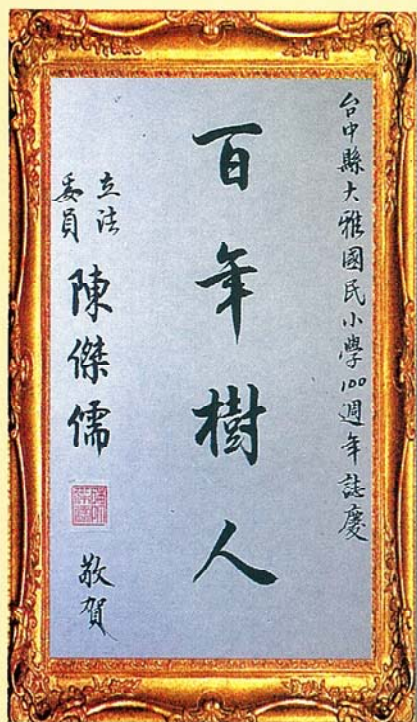 台中縣大雅國民小學100週年誌慶
百年樹人
立法
委員
陳傑儒
敬賀